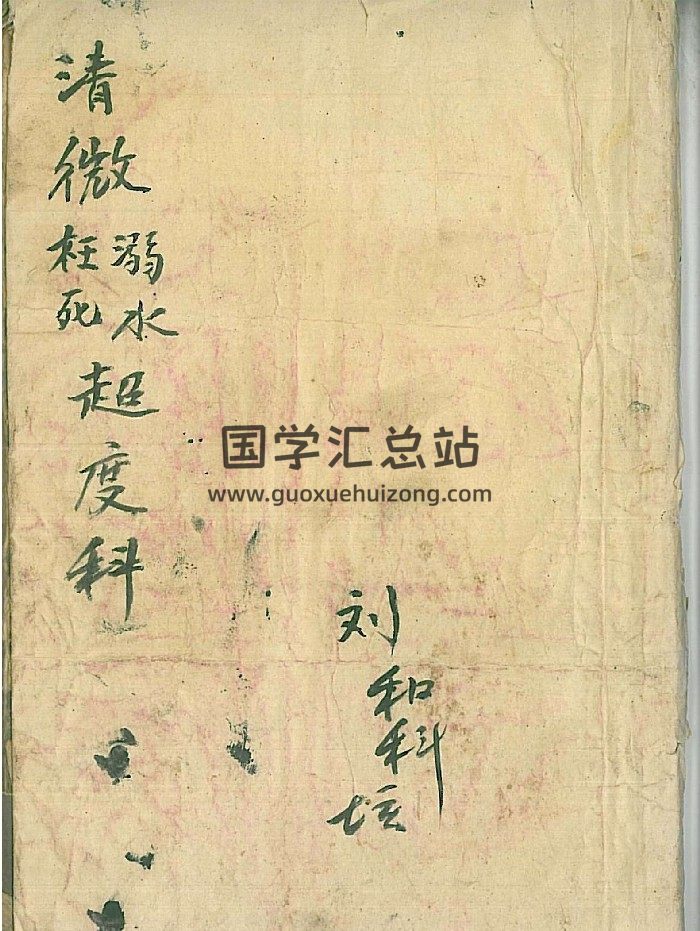 清微
溺水
枉死
超度科
国学汇总站
www.guoxuehuizong.com
刘和科